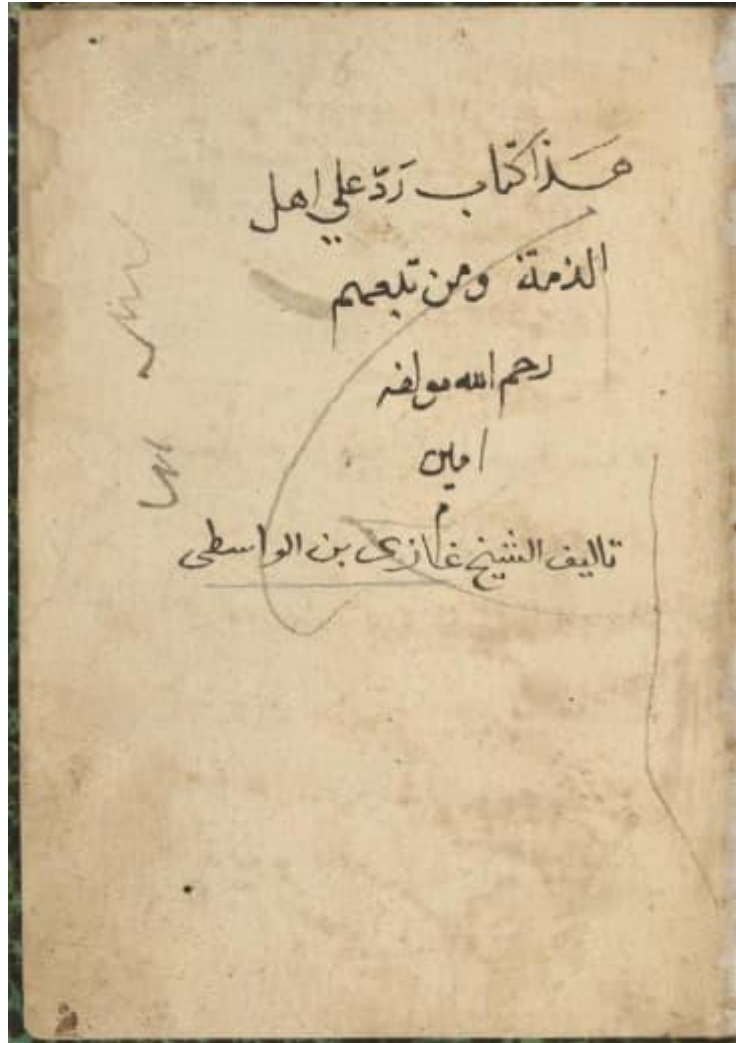 هَذا كتاب رَدّ علي اهل
الذمة ومن تبعهم
رحم الله مولفه
امين
م
تاليف الشيخ غازى بن الواسطى